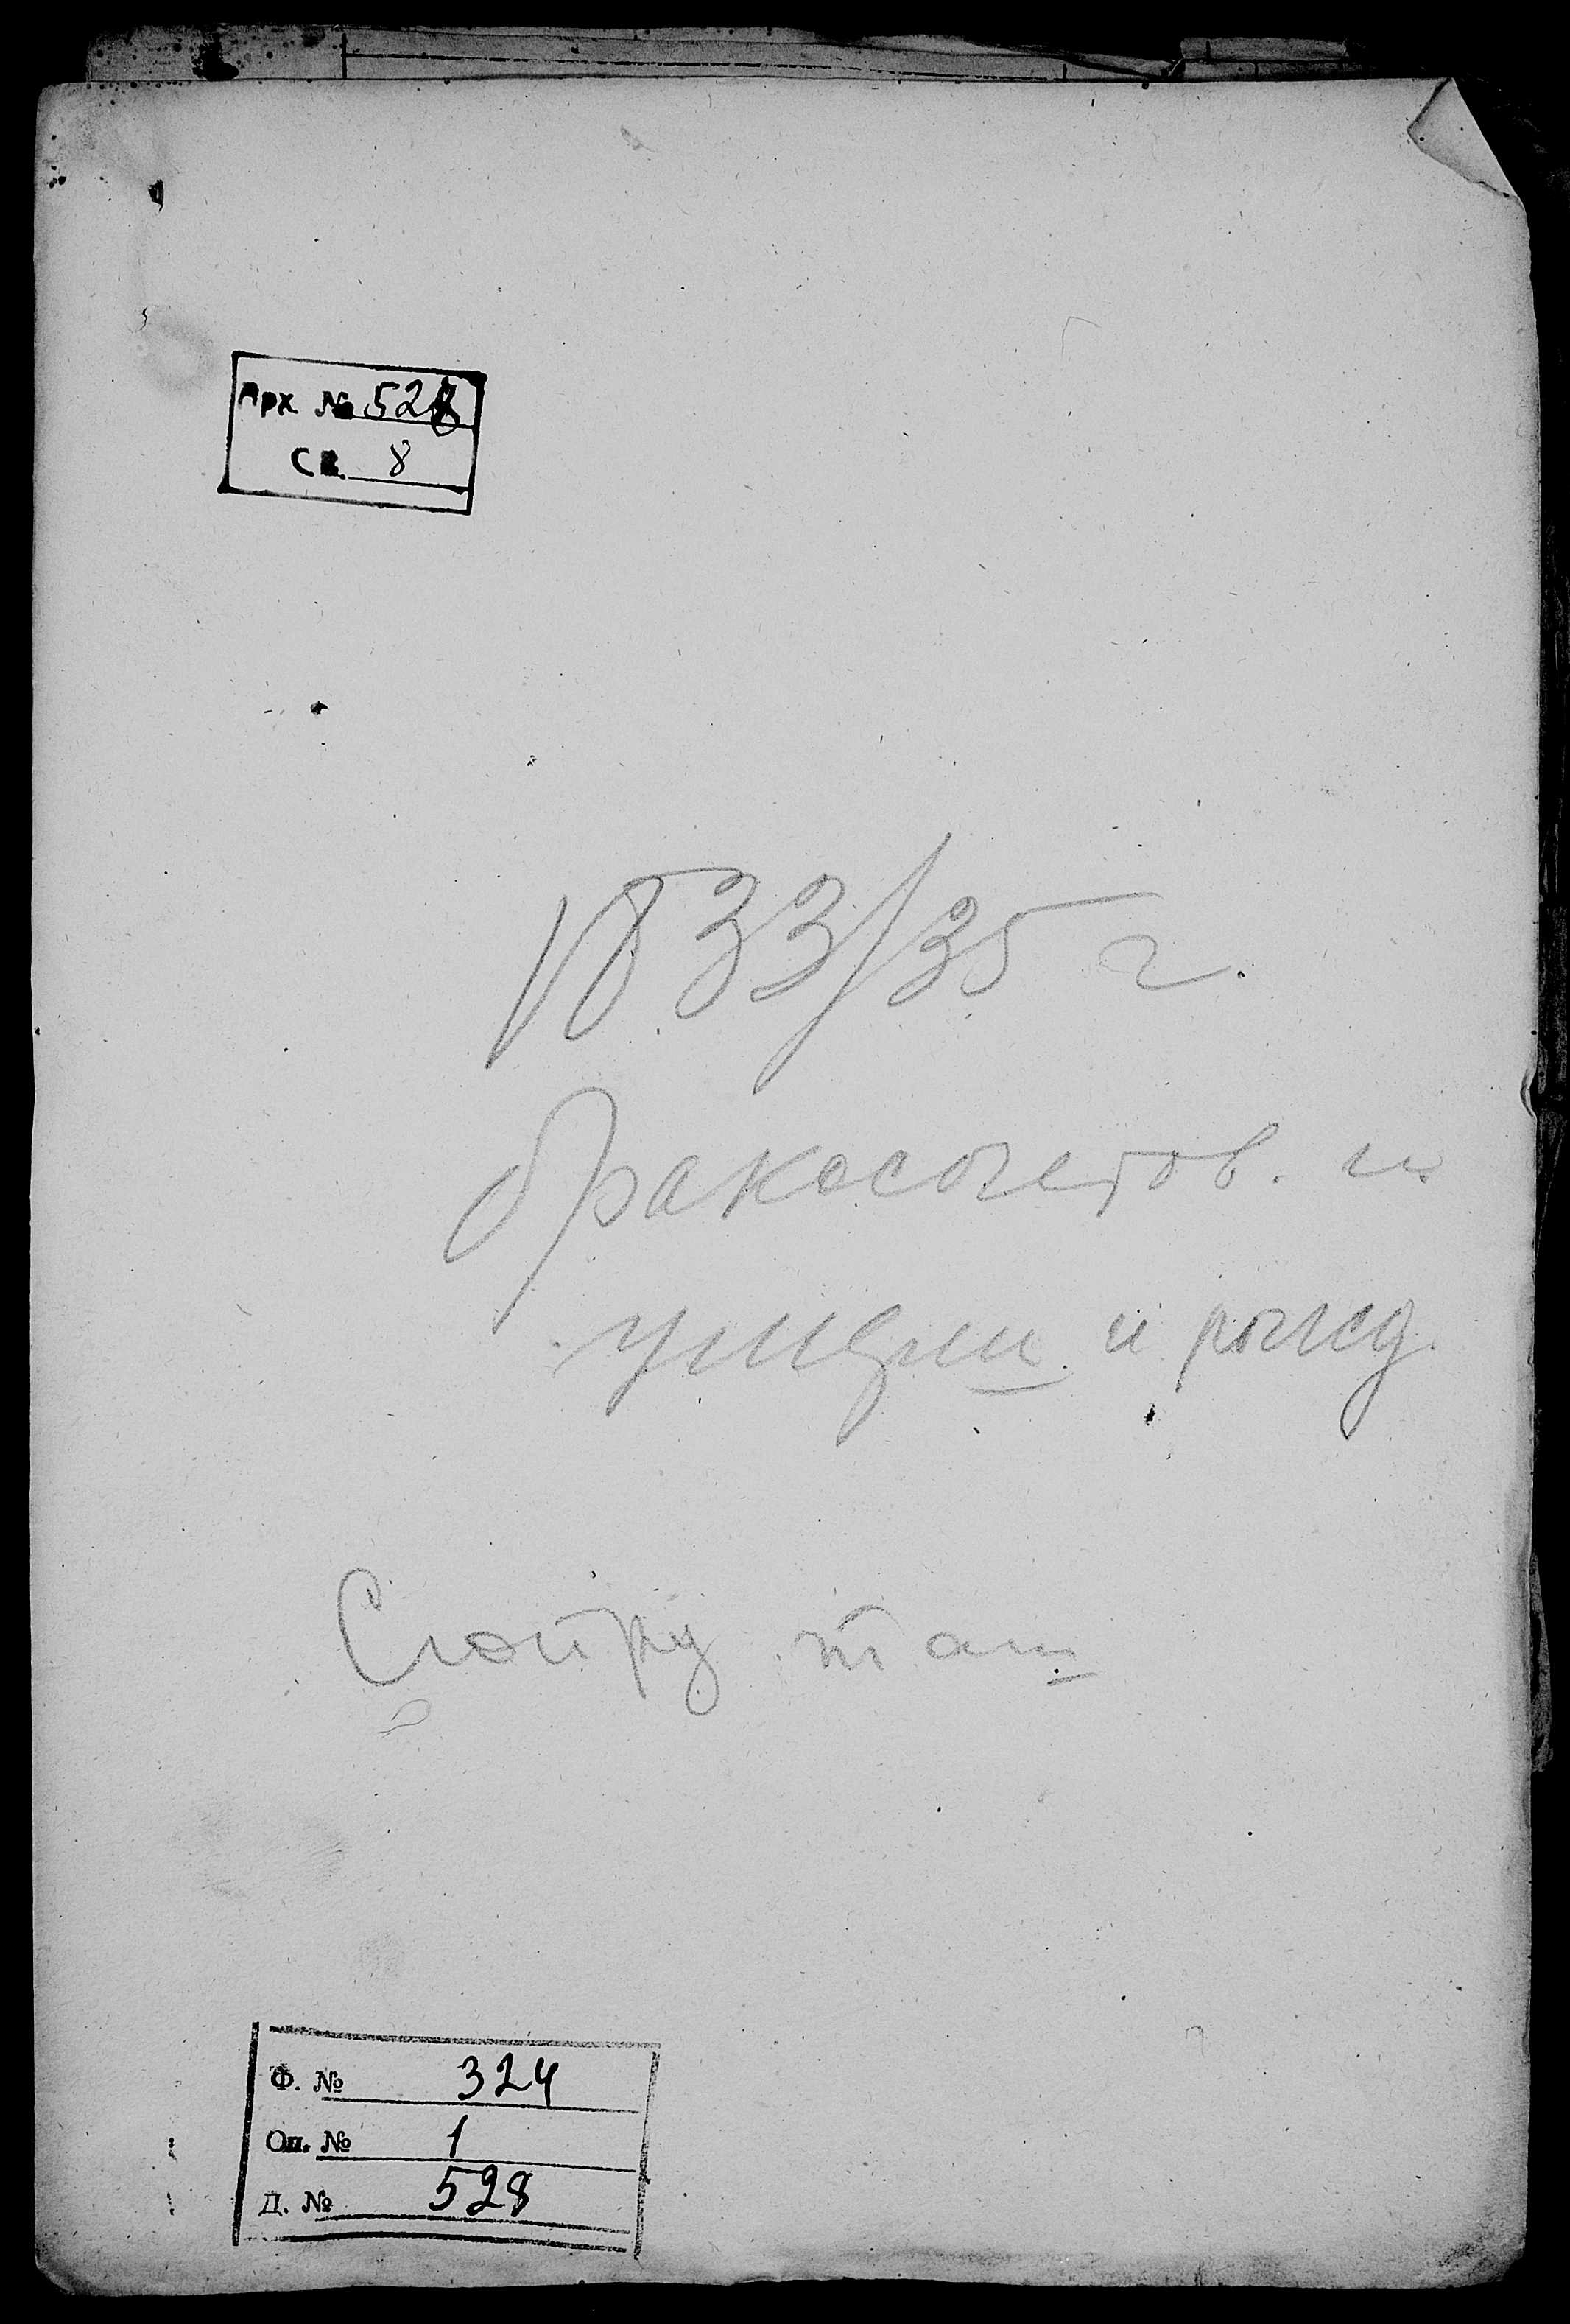 Арх № 528
Св. 8
1833/35 г.
бракосочетов. и
умерш. и рожд.
Ф. № 324
Оп. № 1
Д. № 528